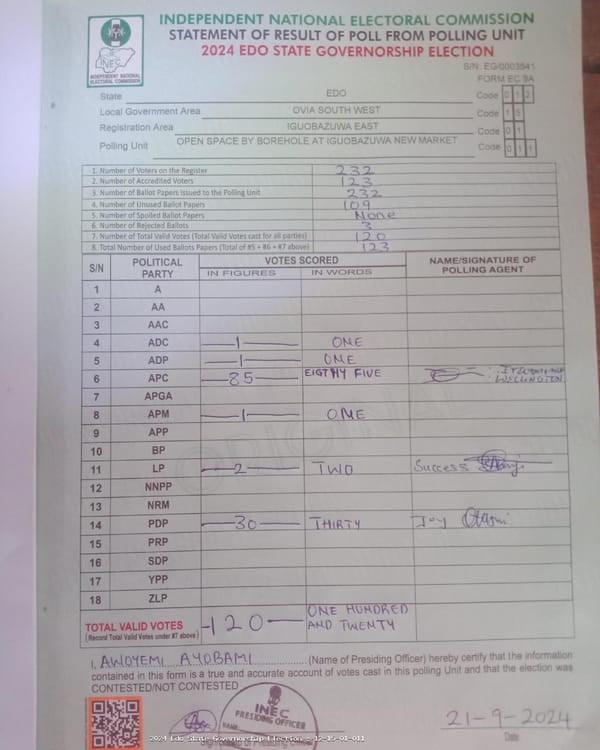 INDEPENDENT NATIONAL ELECTORAL COMMISSION
STATEMENT OF RESULT OF POLL FROM POLLING UNIT
2024 EDO STATE GOVERNORSHIP ELECTION
INEC
INDEPENDENT NATIONAL ELECTORAL COMMISSION
S/N: EG/0003641
FORM EC 8A
State EDO Code 0 1 2
Local Government Area OVIA SOUTH WEST Code 1 5
Registration Area IGUOBAZUWA EAST Code 0 1
Polling Unit OPEN SPACE BY BOREHOLE AT IGUOBAZUWA NEW MARKET Code 0 1 1
1. Number of Voters on the Register 232
2. Number of Accredited Voters 123
3. Number of Ballot Papers Issued to the Polling Unit 232
4. Number of Unused Ballot Papers 109
5. Number of Spoiled Ballot Papers None
6. Number of Rejected Ballots 3
7. Number of Total Valid Votes (Total Valid Votes cast for all parties) 120
8. Total Number of Used Ballots Papers (Total of #5 + #6 + #7 above) 123
S/N POLITICAL PARTY VOTES SCORED NAME/SIGNATURE OF POLLING AGENT
IN FIGURES IN WORDS
1 A
2 AA
3 AAC
4 ADC 1 ONE
5 ADP 1 ONE
6 APC 85 EIGTHY FIVE WELLINGTON
7 APGA
8 APM 1 ONE
9 APP
10 BP
11 LP 2 TWO Success
12 NNPP
13 NRM
14 PDP 30 THIRTY Joy
15 PRP
16 SDP
17 YPP
18 ZLP
TOTAL VALID VOTES 120 ONE HUNDRED AND TWENTY
(Record Total Valid Votes under #7 above)
ORIGINAL
I, AWOYEMI AYOBAMI (Name of Presiding Officer) hereby certify that the information
contained in this form is a true and accurate account of votes cast in this polling Unit and that the election was
CONTESTED/NOT CONTESTED
INEC
PRESIDING OFFICER
NAME:
21-9-2024
Date
2024 Edo State Governorship Election - 12-15-01-011